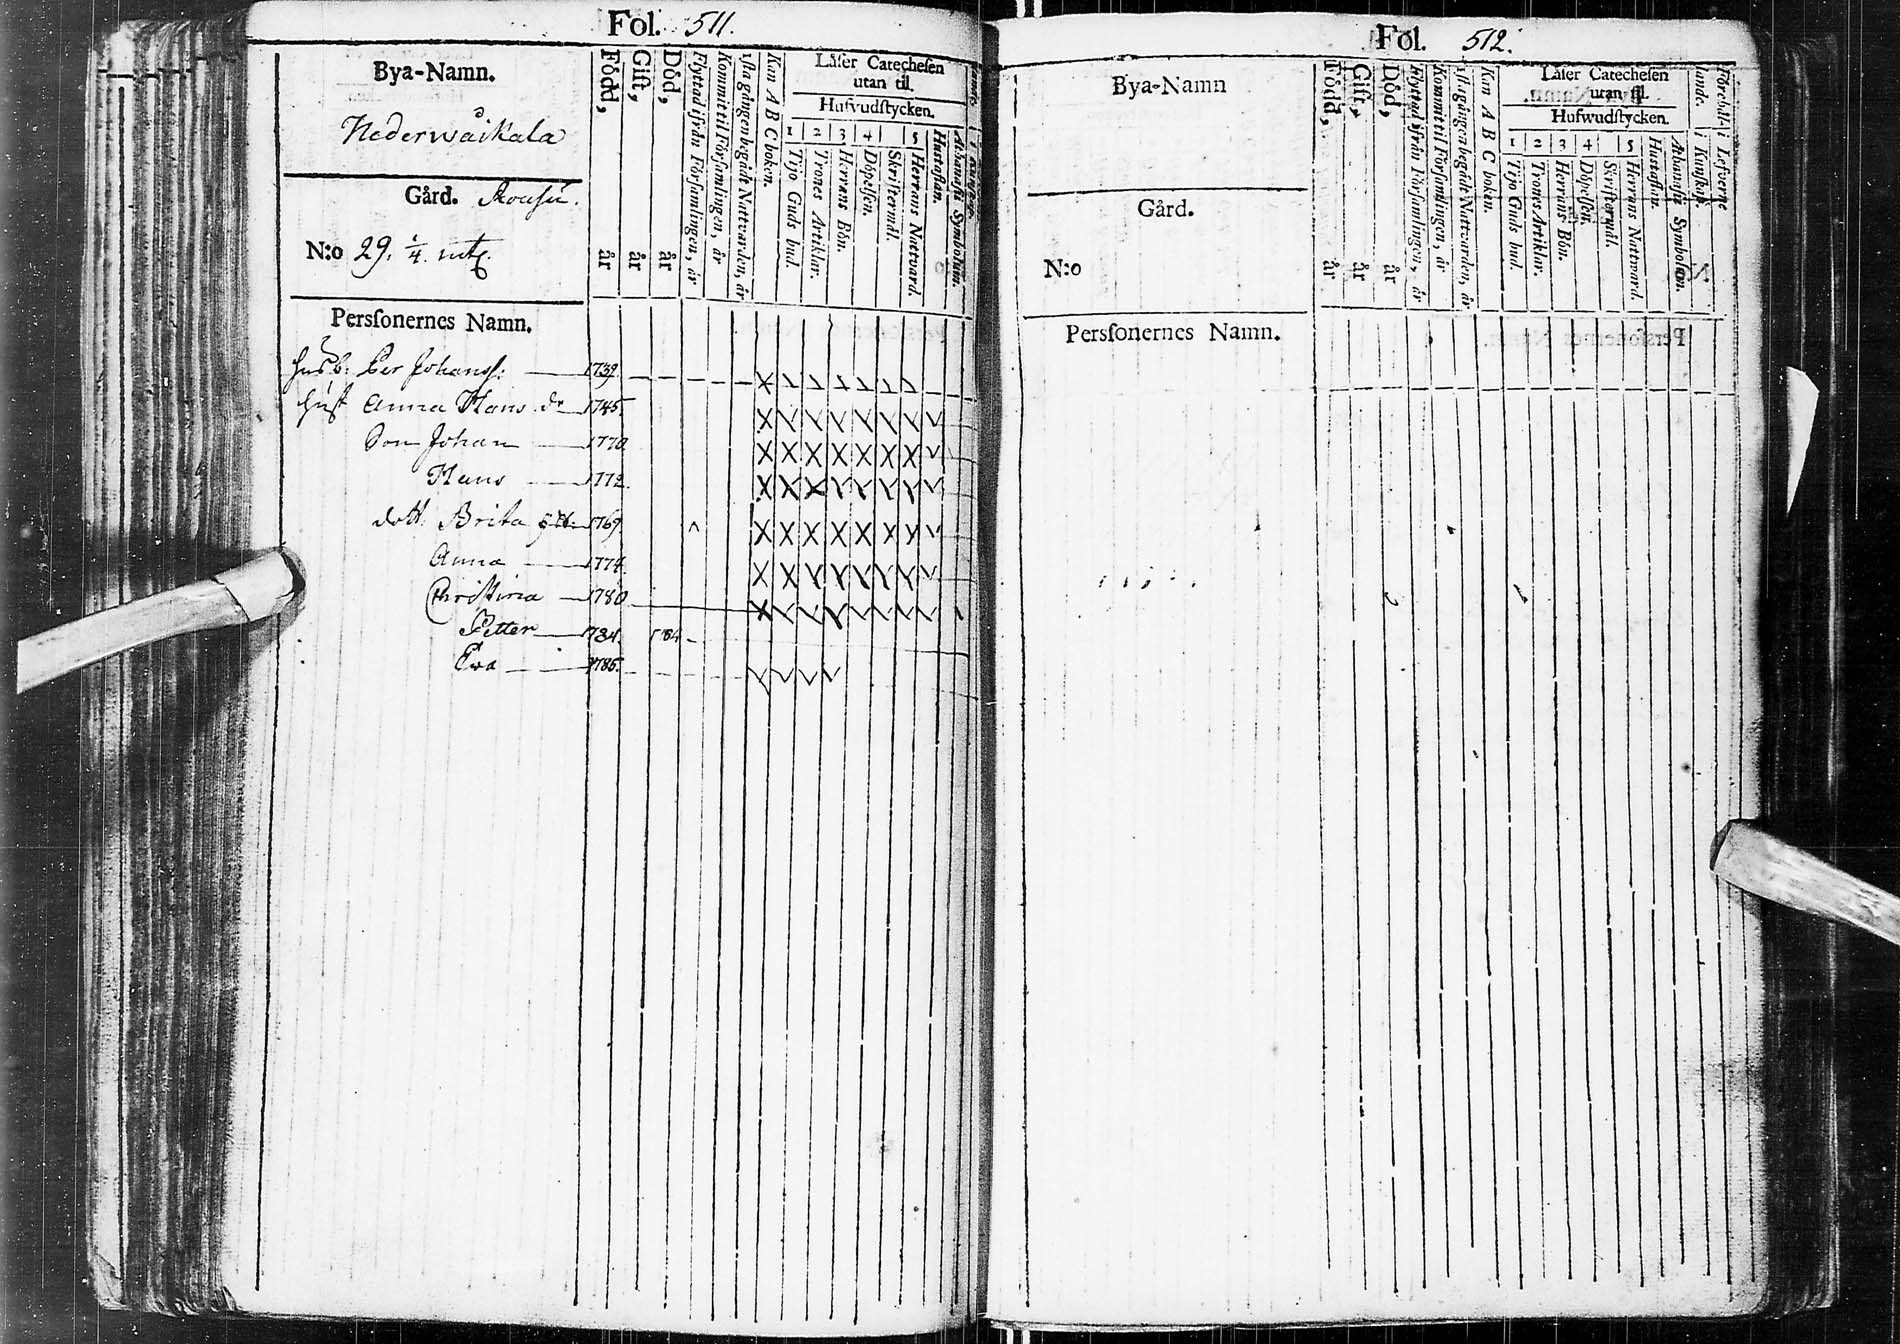 Fol. 511.
Bya-Namn.
Nederwåikala
Gård.
N:o 29. 1/4. mtl.
Persſonernes Namn.
Född, år
Gift, år
Död, år
Flyttad ifrån Församlingen, år
Kommit til Församlingen, år
1sta gången begådt Nattvarden, år
Kan A B C boken.
Låſer Catecheſen
utan til.
Hufvudſtycken.
1 2 3 4 5
Tijo Guds bud.
Trones Artiklar.
Herrans Bön.
Döpelſen.
Skriftermål.
Herrans Natvard.
Huſtaflan.
Athanaſii Symbolum.
husb: Per Johansſ: 1739.
hust Anna Hans dr 1745.
Son Johan 1770.
Hans 1772.
dott. Brita 1769.
Anna 1774.
Christina 1780
Petter 1784. 1784
Ewa 1785.
Fol. 512.
Bya-Namn
Gård.
N:o
Persſonernes Namn.
Född, år
Gift, år
Död, år
Flyttad ifrån Församlingen, år
Kommit til Församlingen, år
1sta gången begådt Nattvarden, år
Kan A B C boken.
Låſer Catecheſen
utan til.
Hufwudſtycken.
1 2 3 4 5
Tijo Guds bud.
Trones Artiklar.
Herrans Bön.
Döpelſen.
Skriftermål.
Herrans Natward.
Huſtaflan.
Athanaſii Symbolum.
i Kunſkap.
i Lefverne